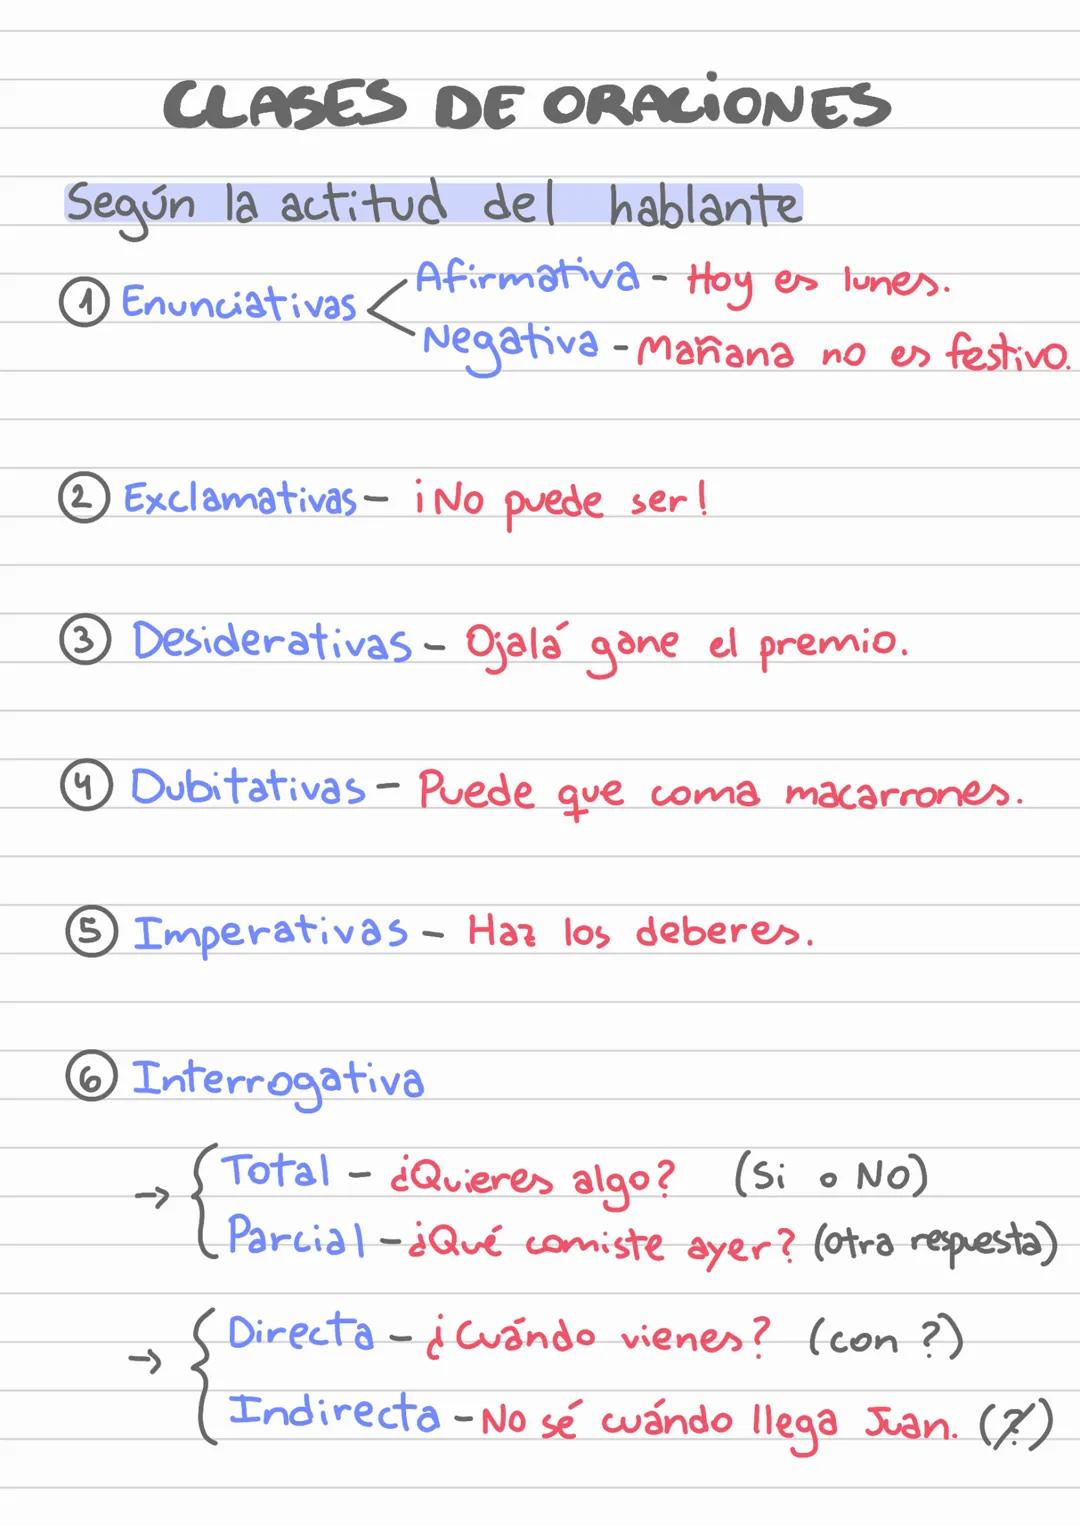 CLASES DE ORACIONES
Según la actitud del hablante
① Enunciativas < Afirmativa - Hoy es lunes.
Negativa - Mañana no es festivo.
② Exclamativas - ¡No puede ser!
③ Desiderativas - Ojalá gane el premio.
④ Dubitativas - Puede que coma macarrones.
⑤ Imperativas - Haz los deberes.
⑥ Interrogativa
→ { Total - ¿Quieres algo? (Si o No)
Parcial - ¿Qué comiste ayer? (otra respuesta)
→ { Directa - ¿Cuándo vienes? (con ?)
Indirecta - No sé cuándo llega Juan. (?)